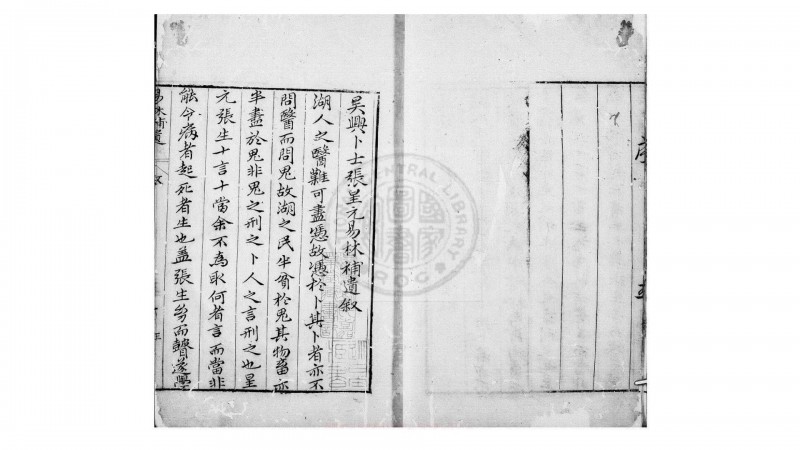 吳興卜士張星元易林補遺叙
湖人之醫難可盡憑故憑於卜其卜者亦不
問醫而問鬼故湖之民半貧於鬼其物畜亦
半盡於鬼非鬼之刑之卜人之言刑之也星
元張生十言十當余不為取何者言而當非
能令病者起死者生也蓋張生多而瞽遂學
易林補遺
叙